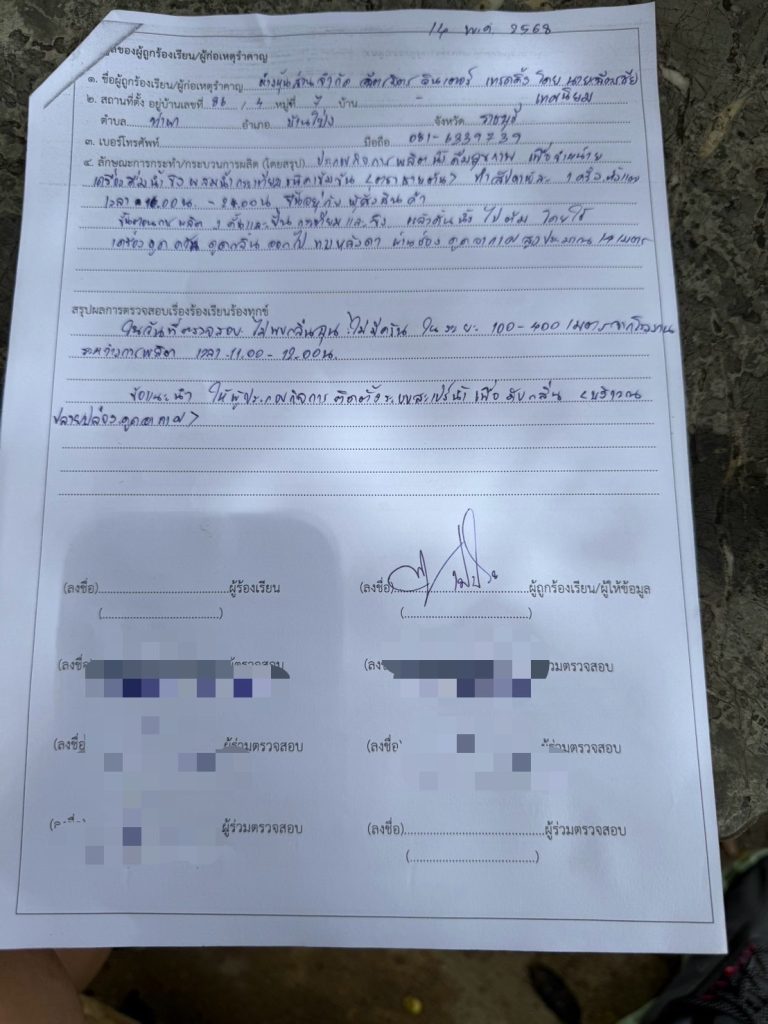 14 พ.ค. 2568
ของผู้ถูกร้องเรียน/ผู้ก่อเหตุรำคาญ
๑. ชื่อผู้ถูกร้องเรียน/ผู้ก่อเหตุรำคาญ ห้างหุ้นส่วนจำกัด อินเตอร์ เทรดดิ้ง โดย
๒. สถานที่ตั้ง อยู่บ้านเลขที่ 86/4 หมู่ที่ บ้าน - เทศนิยม
ตำบล ท่าผา อำเภอ บ้านโป่ง จังหวัด ราชบุรี
๓. เบอร์โทรศัพท์ มือถือ 081-6339739
๔. ลักษณะการกระทำ/กระบวนการผลิต (โดยสรุป) ประกอบกิจการ ผลิตน้ำดื่มสุขภาพ เพื่อจำหน่าย
เครื่องดื่มน้ำขิง ผสมน้ำกระเทียมชนิดเข้มข้น ทำสัปดาห์ละ 1 ครั้ง ตั้งแต่
เวลา .00น. - 20.00น. ขึ้นอยู่กับ ผู้สั่งสินค้า
ขั้นตอนการผลิต กระเทียมและขิง แล้วคั้นน้ำ ไปต้ม โดยใช้
เครื่องดูดควัน ดูดกลิ่นออกไป หลังคา ผ่านช่อง ดูดอากาศ สูงประมาณ เมตร
สรุปผลการตรวจสอบเรื่องร้องเรียนร้องทุกข์
ในวันที่ตรวจสอบ ไม่พบกลิ่นฉุน ไม่มีควัน ในระยะ 100-400 เมตร จากโรงงาน
ระหว่างการผลิต เวลา 11.00-12.00น.
ข้อแนะนำ ให้ผู้ประกอบกิจการ ติดตั้งระบบสเปรย์น้ำ เพื่อดับกลิ่น <บริเวณ
ปลายปล่องดูดอากาศ>
(ลงชื่อ) ผู้ร้องเรียน (ลงชื่อ) ผู้ถูกร้องเรียน/ผู้ให้ข้อมูล
(ลงชื่อ ผู้ตรวจสอบ (ลง ร่วมตรวจสอบ
(ลงชื่อ ผู้ร่วมตรวจสอบ (ลงชื่อ ผู้ร่วมตรวจสอบ
ผู้ร่วมตรวจสอบ (ลงชื่อ) ผู้ร่วมตรวจสอบ